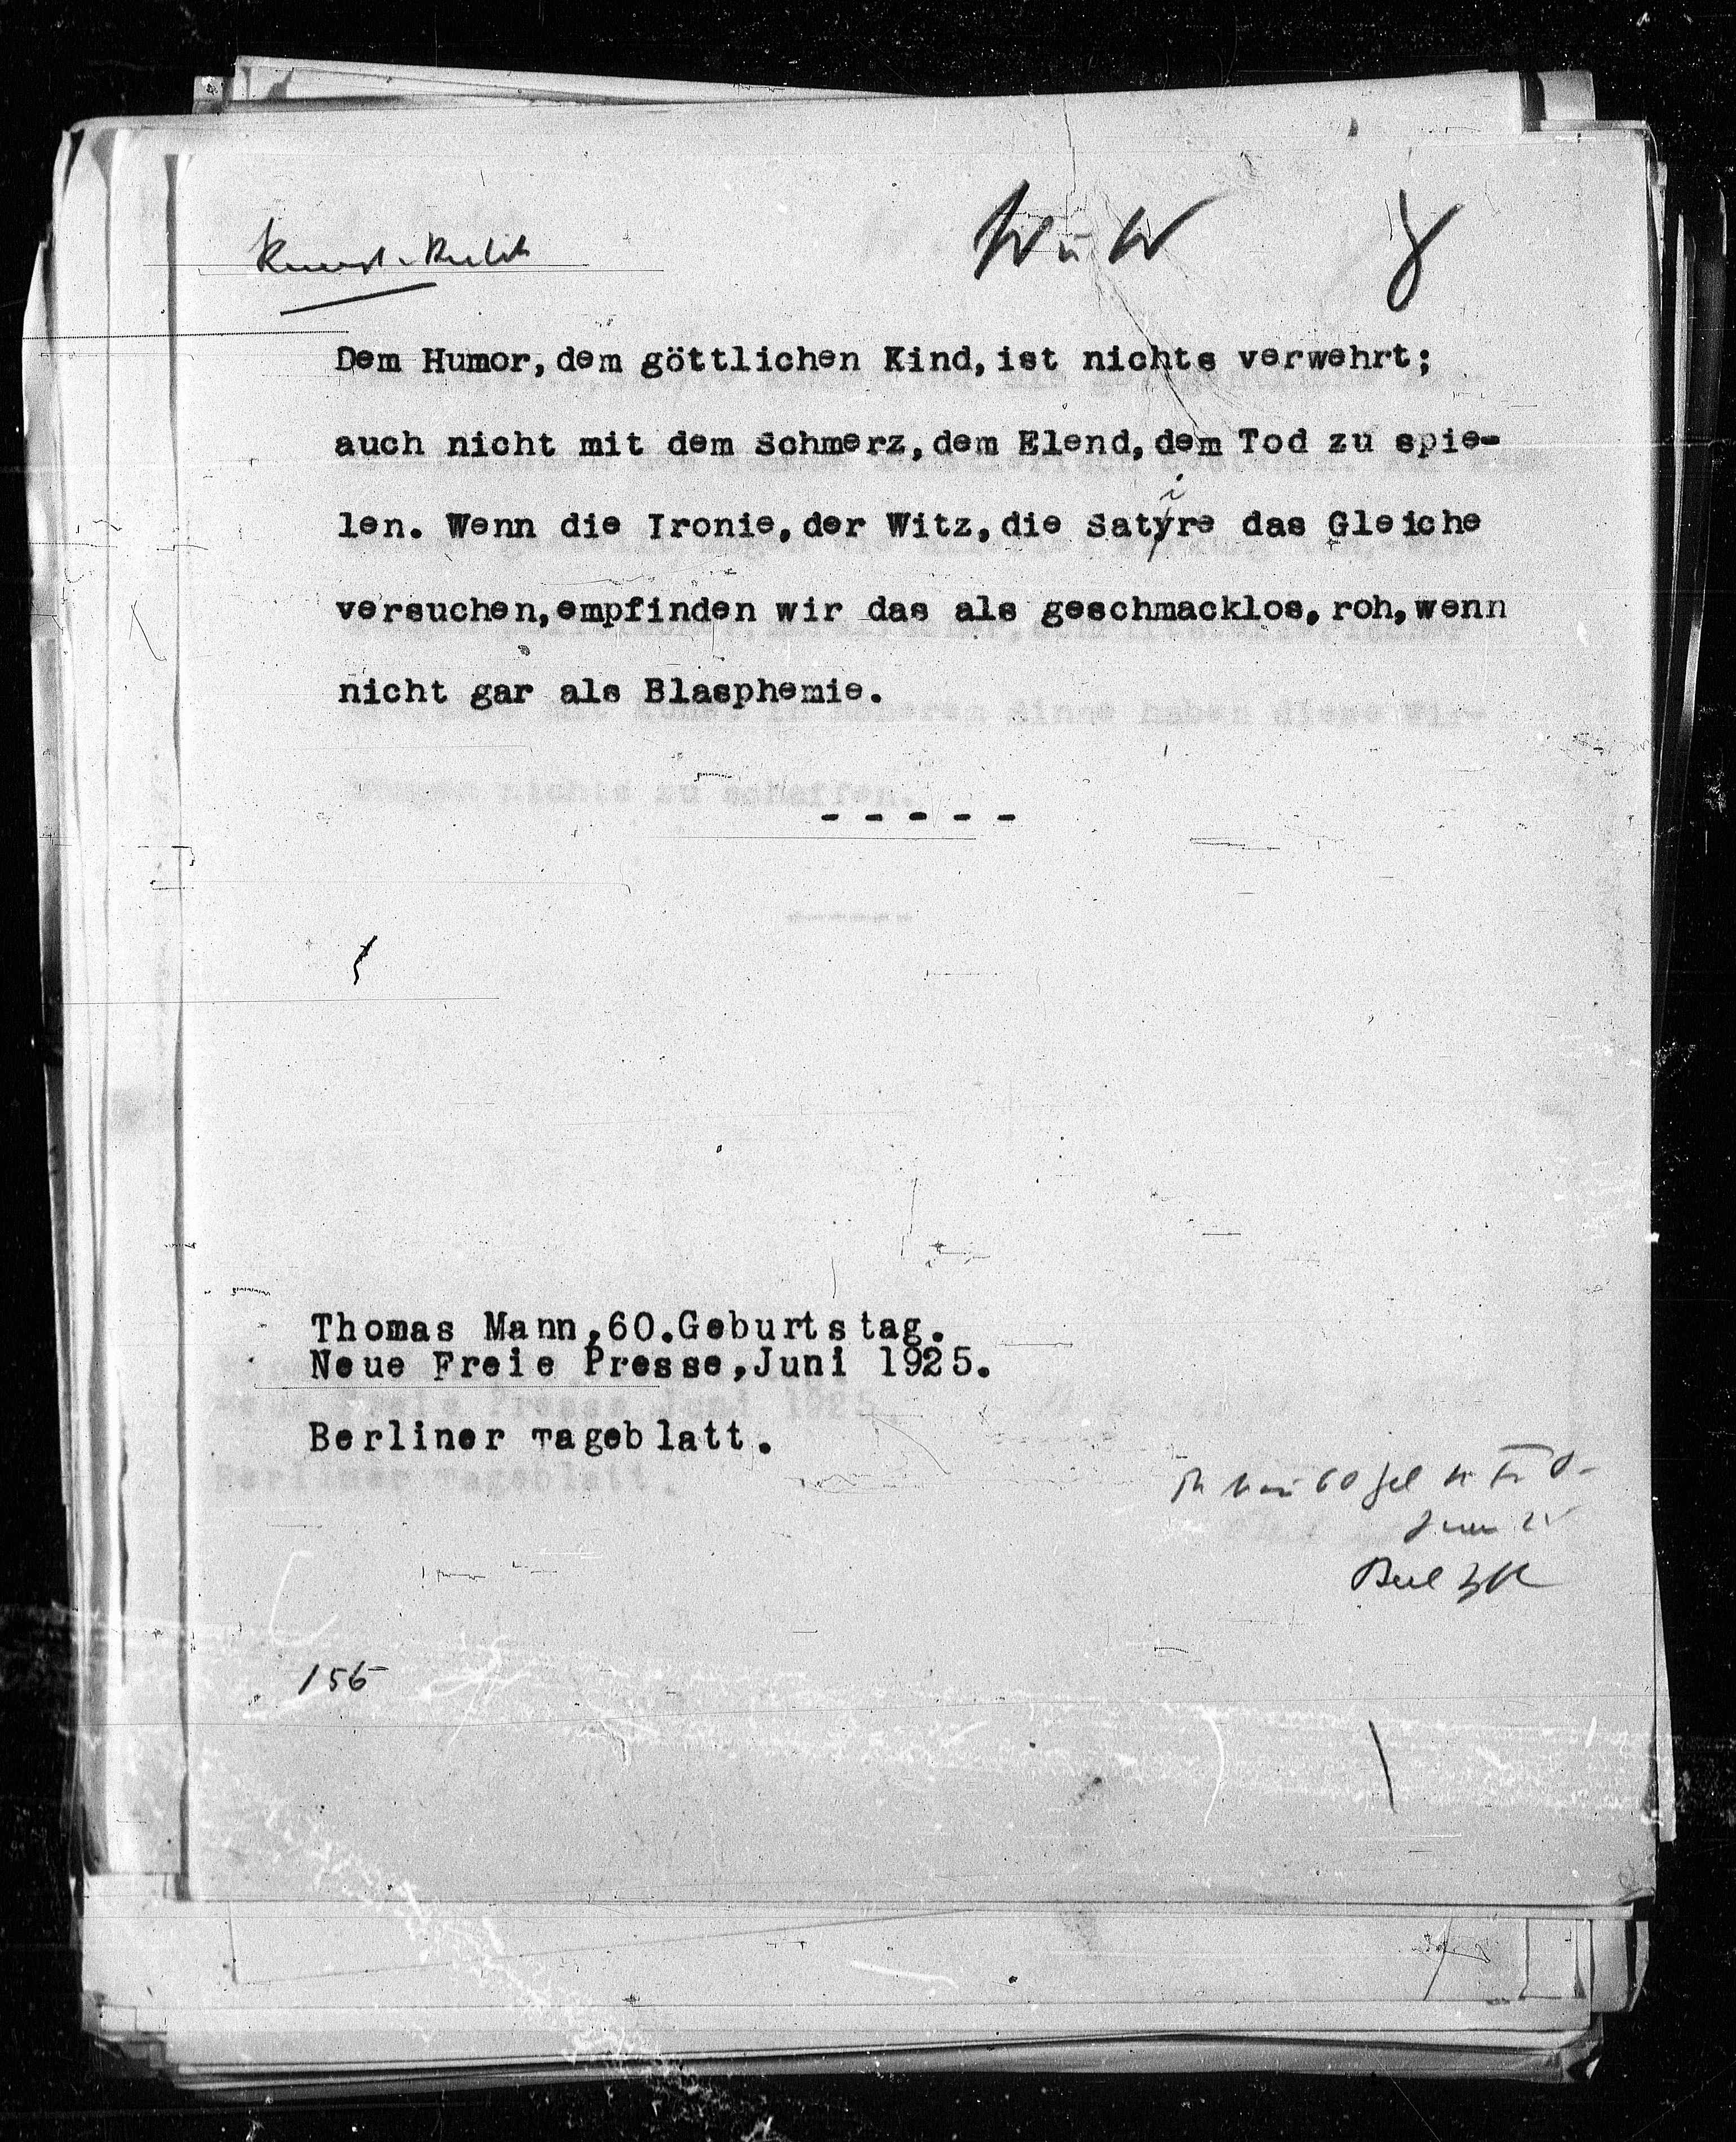 W u W
Dem Humor, dem göttlichen Kind, ist nichts verwehrt;
auch nicht mit dem Schmerz, dem Elend, dem Tod zu spie-
len. Wenn die Ironie, der Witz, die Satire das Gleiche
versuchen, empfinden wir das als geschmacklos, roh, wenn
nicht gar als Blasphemie.
- - - - -
Thomas Mann, 60. Geburtstag.
Neue Freie Presse, Juni 1925.
Berliner Tageblatt.
156